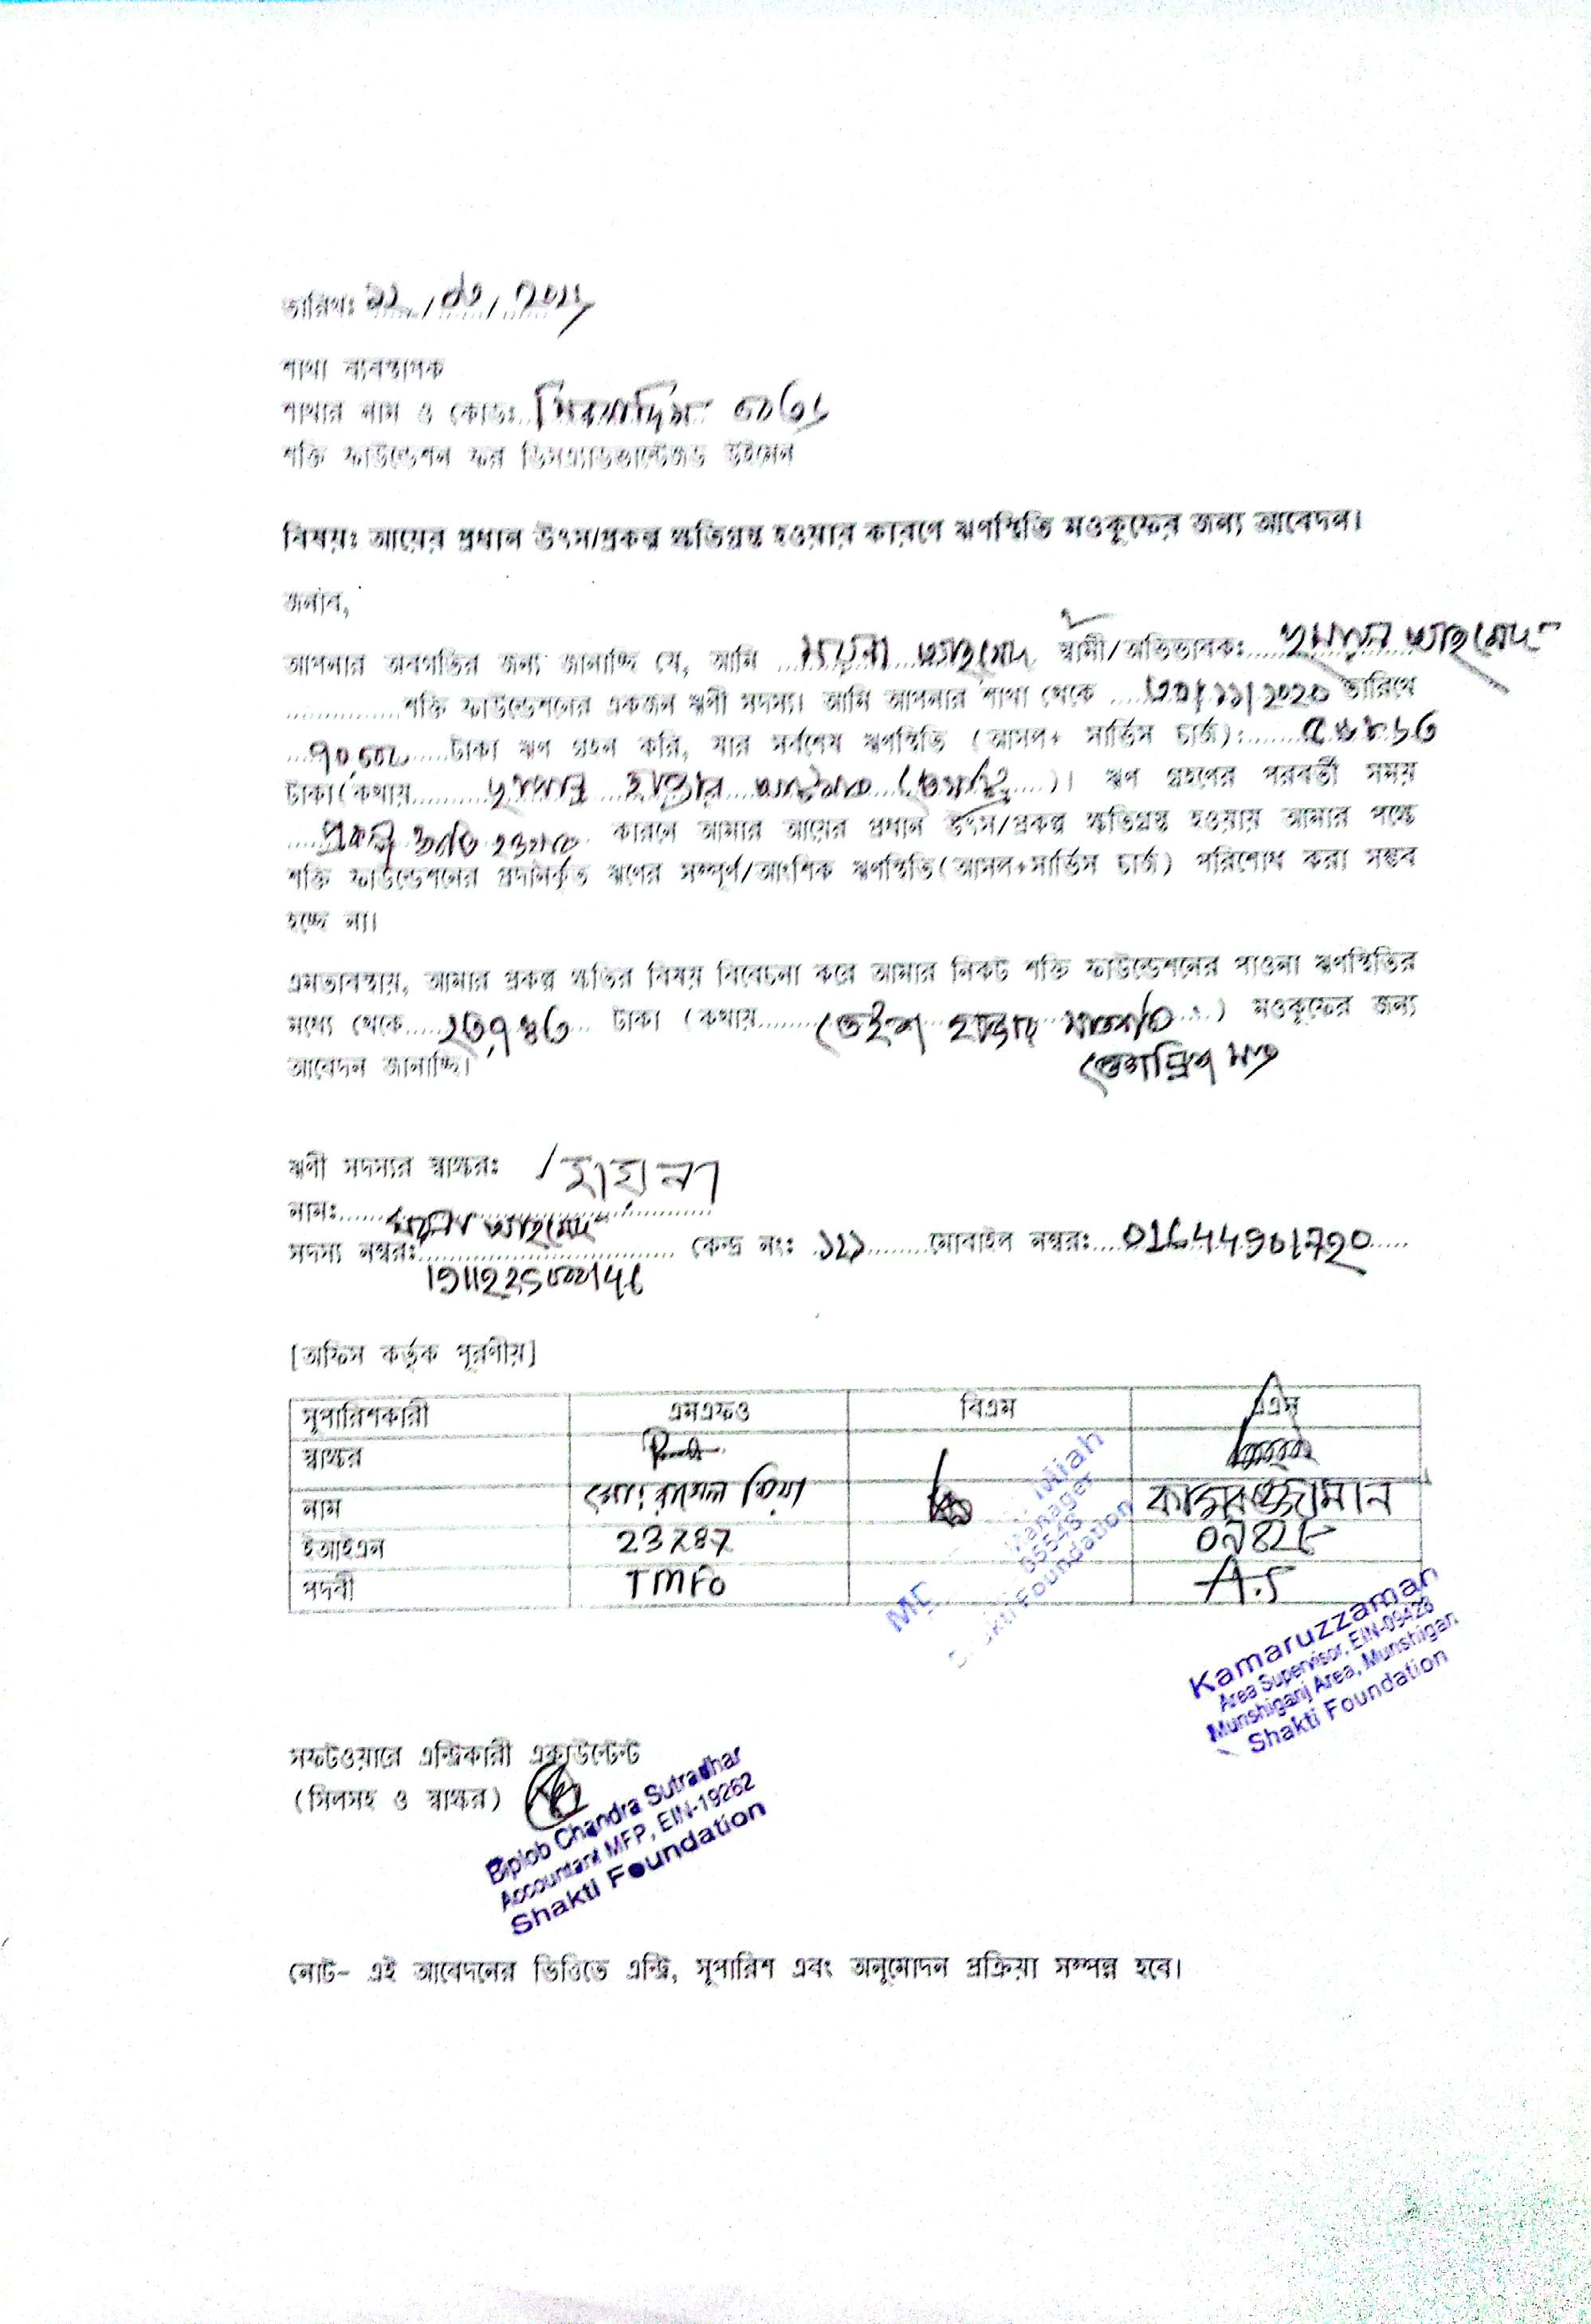 তারিখঃ
শাখা ব্যবস্থাপক
শাখার নাম ও কোডঃ
শক্তি ফাউন্ডেশন ফর ডিসএ্যাডভান্টেজড উইমেন
বিষয়ঃ আয়ের প্রধান উৎস/প্রকল্প ক্ষতিগ্রস্ত হওয়ার কারণে ঋণস্থিতি মওকুফের জন্য আবেদন।
জনাব,
আপনার অবগতির জন্য জানাচ্ছি যে, আমি ময়না আহমেদ স্বামী/অভিভাবকঃ আহমেদ
শক্তি ফাউন্ডেশনের একজন ঋণী সদস্য। আমি আপনার শাখা থেকে তারিখে
টাকা ঋণ গ্রহন করি, যার সর্বশেষ ঋণস্থিতি (আসল+ সার্ভিস চার্জ):
টাকা(কথায় হাজার )। ঋণ গ্রহণের পরবর্তী সময়
কারনে আমার আয়ের প্রধান উৎস/প্রকল্প ক্ষতিগ্রস্ত হওয়ায় আমার পক্ষে
শক্তি ফাউন্ডেশনের প্রদানকৃত ঋণের সম্পূর্ণ/আংশিক ঋণস্থিতি(আসল+সার্ভিস চার্জ) পরিশোধ করা সম্ভব
হচ্ছে না।
এমতাবস্থায়, আমার প্রকল্প ক্ষতির বিষয় বিবেচনা করে আমার নিকট শক্তি ফাউন্ডেশনের পাওনা ঋণস্থিতির
মধ্যে থেকে ২৩,৭৪৩ টাকা (কথায় তেইশ হাজার সাতশত ) মওকুফের জন্য
তেতাল্লিশ মাত্র
আবেদন জানাচ্ছি।
ঋণী সদস্যর স্বাক্ষরঃ ময়না
নামঃ ময়না আহমেদ
সদস্য নম্বরঃ কেন্দ্র নংঃ মোবাইল নম্বরঃ
[অফিস কর্তৃক পূরণীয়]
সুপারিশকারী এমএফও বিএম এএস
স্বাক্ষর
নাম মোঃ রাসেল মিয়া কামরুজ্জামান
ইআইএন 23287 ০৯৪২৮
পদবী TMFO A.S
Miah
Manager
05548
Shakti Foundation
Kamaruzzaman
Area Supervisor, EIN-09428
Munshiganj Area, Munshiganj
Shakti Foundation
সফটওয়ারে এন্ট্রিকারী একাউন্টেন্ট
(সিলসহ ও স্বাক্ষর)
Biplob Chandra Sutradhar
Accountant MFP, EIN-19262
Shakti Foundation
নোট- এই আবেদনের ভিত্তিতে এন্ট্রি, সুপারিশ এবং অনুমোদন প্রক্রিয়া সম্পন্ন হবে।